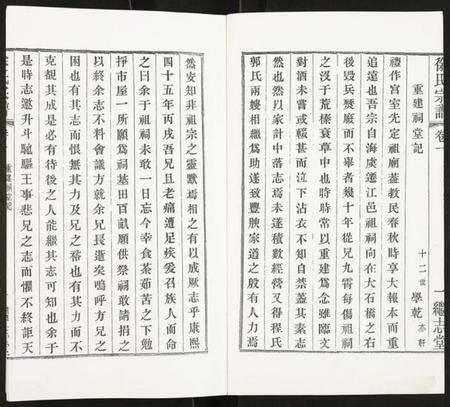 徐氏宗譜 卷一
重建祠堂記
十二世 學乾 亦軒
禮作宮室先定祖廟蓋教民春秋時享大報本而重
追遠也吾宗自海虞遷江邑祖祠向在大石橋之右
後毀兵燹廢而不舉者幾十年從兄九霄每傷祖祠
之沒于荒榛衰草中也時時常以重建為念雖臨文
對酒未嘗或輟甚而泣下沾衣不知自禁蓋其素志
然也然以家計中落志未遂積數經營又得程氏
郭氏兩嫂相繼為助遂致豐腴家道之般有人力焉
然安知非祖宗之靈默為相之有以成厥志乎康熙
四十五年丙戌吾兄且老痛遭足疾爰召族人而命
之曰余于祖祠未敢一日忘今幸食荼茹苦之下勉
掙市屋一所願為祠基田百畝願供祭祠敢諸捐之
以終余志不料會議方就余兄長逝矣嗚呼方兄之
困也有其志而恨無其力及兄之裕也有其力而不
克觀其成是必有待後之人能繼其志可知也余于
是時志邀升斗馳驅王事悲兄之志而懼不終詎天
一 繼志堂
重建祠堂記